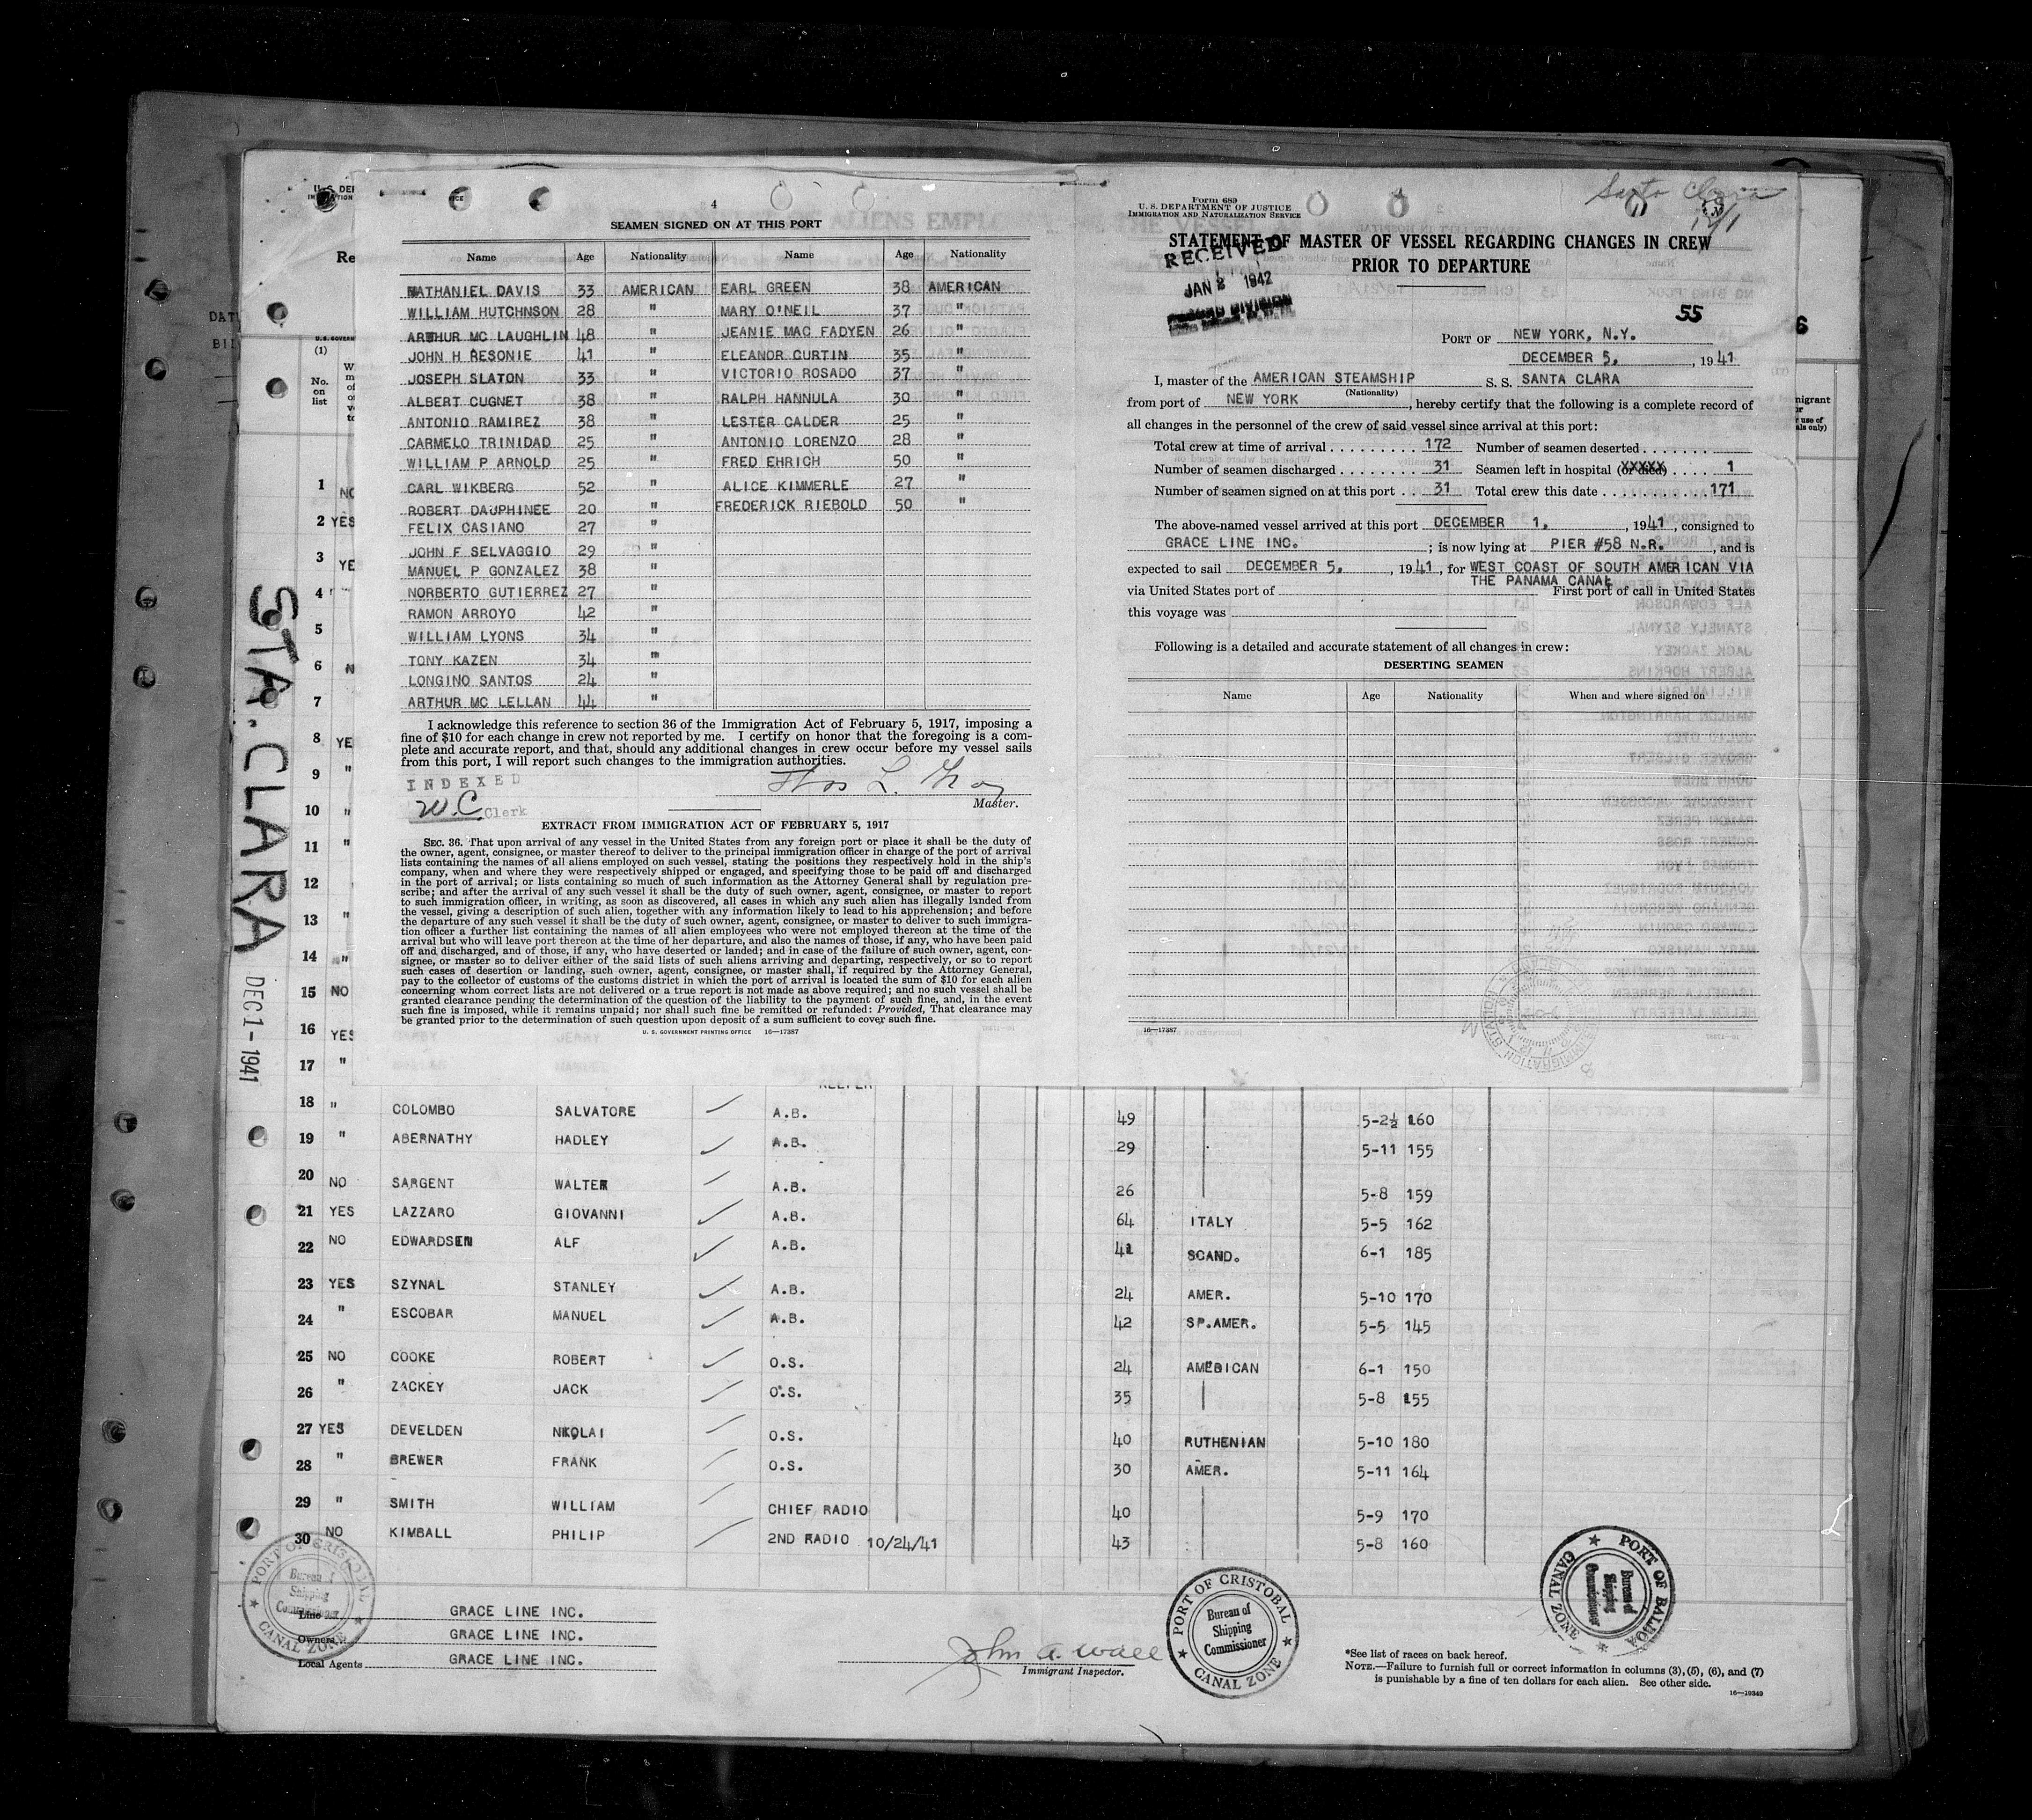 4
SEAMEN SIGNED ON AT THIS PORT
Name Age Nationality Name Age Nationality
NATHANIEL DAVIS 33 AMERICAN EARL GREEN 38 AMERICAN
WILLIAM HUTCHNSON 28 " MARY O'NEIL 37 "
ARTHUR MC LAUGHLIN 48 " JEANIE MAC FADYEN 26 "
JOHN H RESONIE 41 " ELEANOR CURTIN 35 "
JOSEPH SLATON 33 " VICTORIO ROSADO 37 "
ALBERT CUGNET 38 " RALPH HANNULA 30 "
ANTONIO RAMIREZ 38 " LESTER CALDER 25 "
CARMELO TRINIDAD 25 " ANTONIO LORENZO 28 "
WILLIAM P ARNOLD 25 " FRED EHRICH 50 "
CARL WIKBERG 52 " ALICE KIMMERLE 27 "
ROBERT DAUPHINEE 20 " FREDERICK RIEBOLD 50 "
FELIX CASIANO 27 "
JOHN F SELVAGGIO 29 "
MANUEL P GONZALEZ 38 "
NORBERTO GUTIERREZ 27 "
RAMON ARROYO 42 "
WILLIAM LYONS 34 "
TONY KAZEN 34 "
LONGINO SANTOS 24 "
ARTHUR MC LELLAN 44 "
I acknowledge this reference to section 36 of the Immigration Act of February 5, 1917, imposing a
fine of $10 for each change in crew not reported by me. I certify on honor that the foregoing is a com-
plete and accurate report, and that, should any additional changes in crew occur before my vessel sails
from this port, I will report such changes to the immigration authorities.
INDEXED
W.C. Clerk
Master.
EXTRACT FROM IMMIGRATION ACT OF FEBRUARY 5, 1917
SEC. 36. That upon arrival of any vessel in the United States from any foreign port or place it shall be the duty of
the owner, agent, consignee, or master thereof to deliver to the principal immigration officer in charge of the port of arrival
lists containing the names of all aliens employed on such vessel, stating the positions they respectively hold in the ship's
company, when and where they were respectively shipped or engaged, and specifying those to be paid off and discharged
in the port of arrival; or lists containing so much of such information as the Attorney General shall by regulation pre-
scribe; and after the arrival of any such vessel it shall be the duty of such owner, agent, consignee, or master to report
to such immigration officer, in writing, as soon as discovered, all cases in which any such alien has illegally landed from
the vessel, giving a description of such alien, together with any information likely to lead to his apprehension; and before
the departure of any such vessel it shall be the duty of such owner, agent, consignee, or master to deliver to such immigra-
tion officer a further list containing the names of all alien employees who were not employed thereon at the time of the
arrival but who will leave port thereon at the time of her departure, and also the names of those, if any, who have been paid
off and discharged, and of those, if any, who have deserted or landed; and in case of the failure of such owner, agent, con-
signee, or master so to deliver either of the said lists of such aliens arriving and departing, respectively, or so to report
such cases of desertion or landing, such owner, agent, consignee, or master shall, if required by the Attorney General,
pay to the collector of customs of the customs district in which the port of arrival is located the sum of $10 for each alien
concerning whom correct lists are not delivered or a true report is not made as above required; and no such vessel shall be
granted clearance pending the determination of the question of the liability to the payment of such fine, and, in the event
such fine is imposed, while it remains unpaid; nor shall such fine be remitted or refunded: Provided, That clearance may
be granted prior to the determination of such question upon deposit of a sum sufficient to cover such fine.
U. S. GOVERNMENT PRINTING OFFICE 16—17387
Form 689
U. S. DEPARTMENT OF JUSTICE
IMMIGRATION AND NATURALIZATION SERVICE
Santa Clara
STATEMENT OF MASTER OF VESSEL REGARDING CHANGES IN CREW
PRIOR TO DEPARTURE
RECEIVED
JAN 8 1942
55
PORT OF NEW YORK, N.Y.
DECEMBER 5, , 1941
I, master of the AMERICAN STEAMSHIP S. S. SANTA CLARA
(Nationality)
from port of NEW YORK , hereby certify that the following is a complete record of
all changes in the personnel of the crew of said vessel since arrival at this port:
Total crew at time of arrival 172 Number of seamen deserted
Number of seamen discharged 31 Seamen left in hospital (or died) 1
Number of seamen signed on at this port 31 Total crew this date 171
The above-named vessel arrived at this port DECEMBER 1, , 1941, consigned to
GRACE LINE INC. ; is now lying at PIER #58 N.R. , and is
expected to sail DECEMBER 5, , 1941, for WEST COAST OF SOUTH AMERICAN VIA
THE PANAMA CANAL
via United States port of First port of call in United States
this voyage was
Following is a detailed and accurate statement of all changes in crew:
DESERTING SEAMEN
Name Age Nationality When and where signed on
16—17387
STA. CLARA
DEC 1 - 1941
(1)
No. on list
1 NO
2 YES
3 YE
4 "
5
6 N
7
8 YE
9 "
10 "
11 "
12
13 "
14 "
15 NO
16 YES
17 "
KEEPER
18 " COLOMBO SALVATORE A.B. 49 5-2½ 160
19 " ABERNATHY HADLEY A.B. 29 5-11 155
20 NO SARGENT WALTER A.B. 26 5-8 159
21 YES LAZZARO GIOVANNI A.B. 64 ITALY 5-5 162
22 NO EDWARDSEN ALF A.B. 41 SCAND. 6-1 185
23 YES SZYNAL STANLEY A.B. 24 AMER. 5-10 170
24 " ESCOBAR MANUEL A.B. 42 SP.AMER. 5-5 145
25 NO COOKE ROBERT O.S. 24 AMERICAN 6-1 150
26 " ZACKEY JACK O.S. 35 5-8 155
27 YES DEVELDEN NKOLAI O.S. 40 RUTHENIAN 5-10 180
28 " BREWER FRANK O.S. 30 AMER. 5-11 164
29 " SMITH WILLIAM CHIEF RADIO 40 5-9 170
30 NO KIMBALL PHILIP 2ND RADIO 10/24/41 43 5-8 160
PORT OF CRISTOBAL
Bureau of
Shipping
Commissioner
CANAL ZONE
Line GRACE LINE INC.
Owners GRACE LINE INC.
Local Agents GRACE LINE INC.
John A. Wall
Immigrant Inspector.
PORT OF CRISTOBAL
Bureau of
Shipping
Commissioner
CANAL ZONE
PORT OF BALBOA
Bureau of
Shipping
Commissioner
CANAL ZONE
*See list of races on back hereof.
NOTE.—Failure to furnish full or correct information in columns (3), (5), (6), and (7)
is punishable by a fine of ten dollars for each alien. See other side.
16—19349